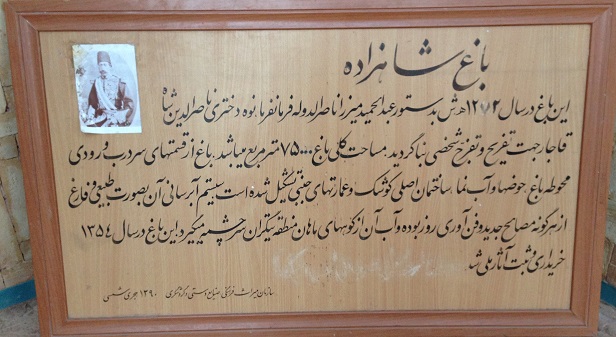 باغ شاهزاده
این باغ در سال ۱۲۷۲ هـ.ش بدستور عبدالحمید میرزا ناصرالدوله فرمانفرما نوه دختری ناصرالدین شاه
قاجار جهت تفریح و تفرج شخصی بنا گردید. مساحت کلی باغ ۷۵۰۰۰ متر مربع میباشد. باغ از قسمتهای سردر ب ورودی
محوطه باغ، حوضها و آب نما، ساختمان اصلی کوشک و عمارتهای جنبی تشکیل شده است سیستم آبرسانی آن بصورت طبیعی و فارغ
از هرگونه مصالح جدید و فن آوری روز بوده و آب آن از کوههای ماهان منطقه تیگران سرچشمه میگیرد. این باغ در سال ۱۳۵۴
خریداری و ثبت آثار ملی شد
سازمان میراث فرهنگی صنایع دستی و گردشگری ۱۳۹۰ هجری شمسی